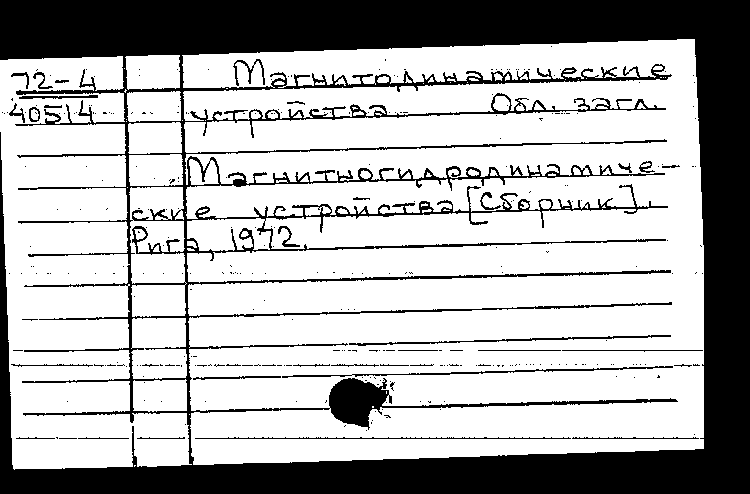 72-4 Магнитодинамические
40514 устройства Обл. загл.
Магнитногидродинамиче-
ские устройства. [Сборник].
Рига, 1972.